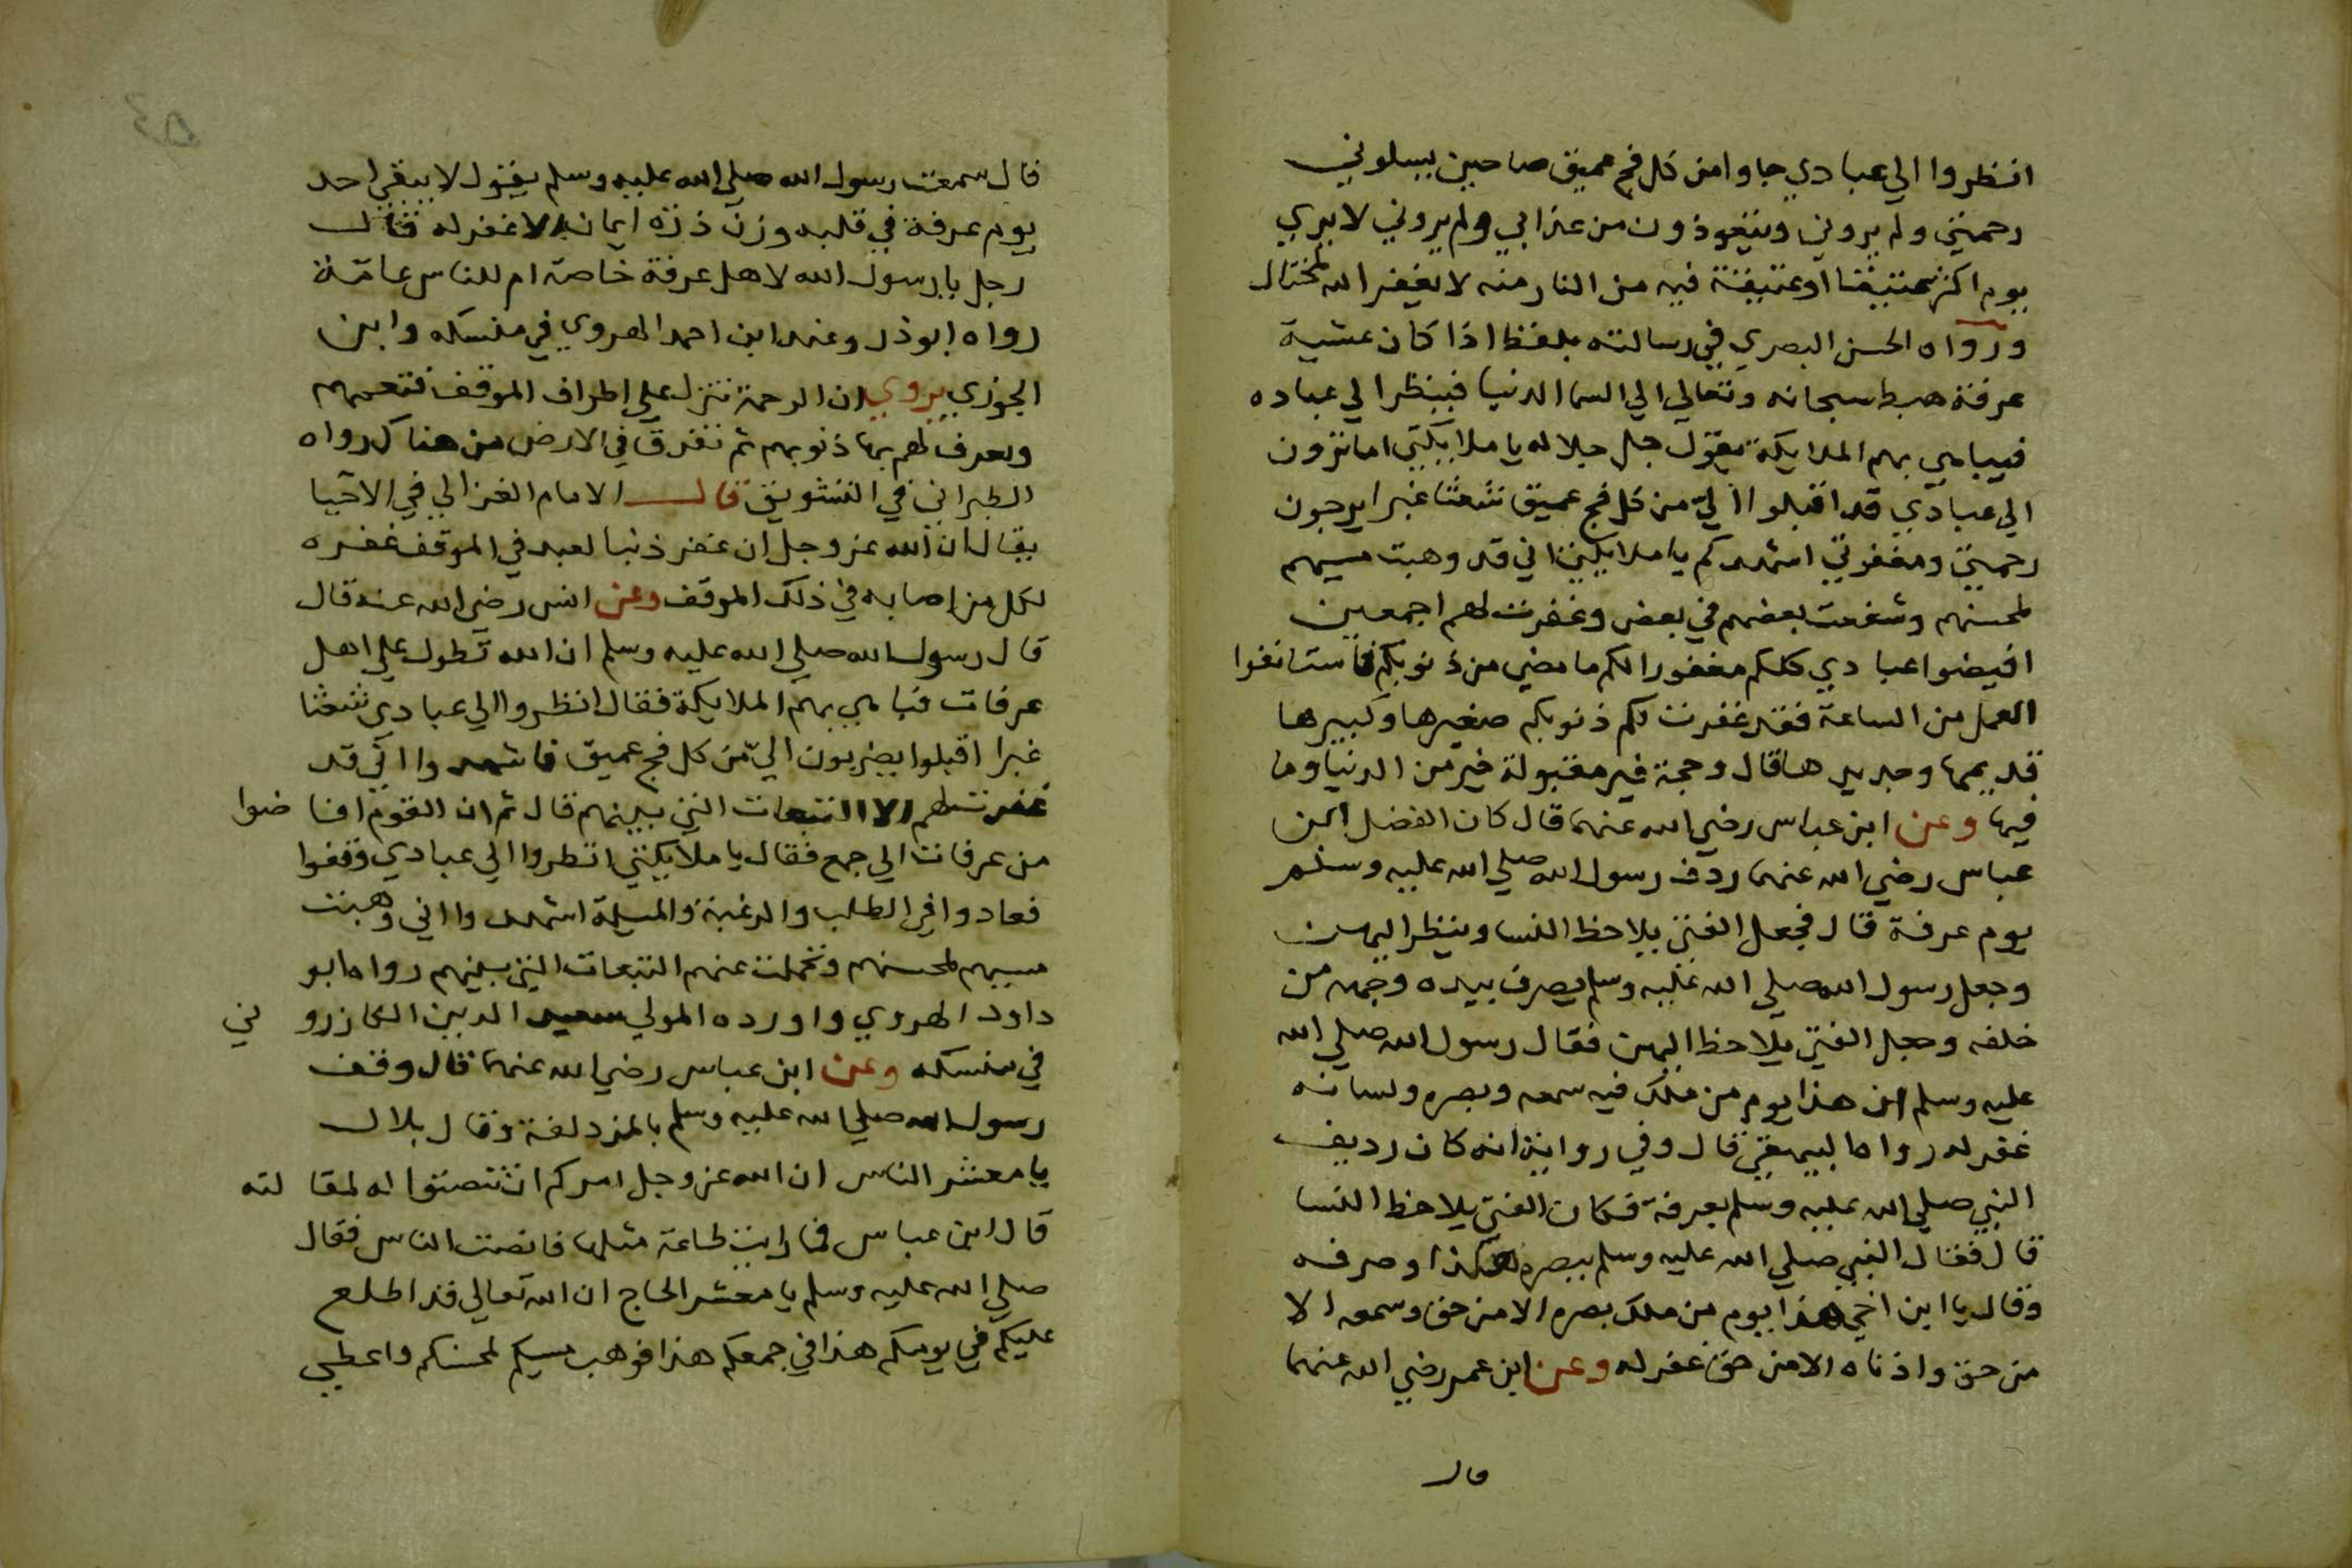 انظروا الي عبادي جاوا من كل فج عميق ضاحين يسلوني
رحمتي ولم يروني ويتعوذون من عذابي ولم يروني لا يري
يوم اكثر عتيقا او عتيقة فيه من النار منه لا يغفر الله لمختال
ورواه الحسن البصري في رسالته بلفظ اذا كان عشية
عرفة هبط سبحانه وتعالي الي السما الدنيا فينظر الي عباده
فيباهي بهم الملايكة يقول جل جلاله يا ملايكتي اما ترون
الي عبادي قد اقبلوا الي من كل فج عميق شعثا غبرا يرجون
رحمتي ومغفرتي اشهدكم يا ملايكتي اني قد وهبت مسيهم
لمحسنهم وشفعت بعضهم في بعض وغفرت لهم اجمعين
افيضوا عبادي كلكم مغفورا لكم ما مضي من ذنوبكم فاستانفوا
العمل من الساعة فقد غفرت لكم ذنوبكم صغيرها وكبيرها
قديمها وجديدها قال وحجة فيه مقبولة خير من الدنيا وما
فيها وعن ابن عباس رضي الله عنهما قال كان الفضل ابن
عباس رضي الله عنهما ردف رسول الله صلي الله عليه وسلم
يوم عرفة قال فجعل الفتي يلاحظ النسا وينظر اليهن
وجعل رسول الله صلي الله عليه وسلم يصرف بيده وجهه من
خلفه وجعل الفتي يلاحظ اليهن فقال رسول الله صلي الله
عليه وسلم ان هذا يوم من ملك فيه سمعه وبصره ولسانه
غفر له رواه البيهقي قال وفي رواية انه كان رديف
النبي صلي الله عليه وسلم بعرفة فكان الفتي يلاحظ النسا
قال فقال النبي صلي الله عليه وسلم ببصره هكذا وصرفه
وقال يا ابن اخي هذا يوم من ملك بصره الا من حق وسمعه الا
من حق واذناه الا من حق غفر له وعن ابن عمر رضي الله عنهما
قال
قال سمعت رسول الله صلي الله عليه وسلم يقول لا يبقي احد
يوم عرفة في قلبه وزن ذرة ايمان الا غفر له فقال
رجل يا رسول الله لاهل عرفة خاصة ام للناس عامة
رواه ابو ذر وعند ابن احمد الهروي في منسكه وابن
الجوزي يروي ان الرحمة تنزل علي اطراف الموقف فتعمهم
ويعرف لهم بها ذنوبهم ثم تفرق في الارض من هناك رواه
الطبراني في التشويق قال الامام الغزالي في الاحيا
يقال ان الله عز وجل ان غفر ذنبا لعبد في الموقف غفره
لكل من اصابه في ذلك الموقف وعن انس رضي الله عنه قال
قال رسول الله صلي الله عليه وسلم ان الله تطول علي اهل
عرفات فباهي بهم الملايكة فقال انظروا الي عبادي شعثا
غبرا اقبلوا يضربون الي من كل فج عميق فاشهدوا اني قد
غفرت لهم الا التبعات التي بينهم قال ثم ان القوم افاضوا
من عرفات الي جمع فقال يا ملايكتي انظروا الي عبادي وقفوا
فعادوا في الطلب والرغبة والمسيلة اشهدوا اني وهبت
مسيهم لمحسنهم وتحملت عنهم التبعات التي بينهم رواه ابو
داود الهروي واورده المولي سعيد الدين الكازروني
في منسكه وعن ابن عباس رضي الله عنهما قال وقف
رسول الله صلي الله عليه وسلم بالمزدلفة وقال بلال
يا معشر الناس ان الله عز وجل امركم ان تنصتوا له لمقالته
قال ابن عباس فما رايت طاعة مثلها فانصت الناس فقال
صلي الله عليه وسلم يا معشر الحاج ان الله تعالي قد اطلع
عليكم في يومكم هذا في جمعكم هذا فوهب مسيكم لمحسنكم واعطي